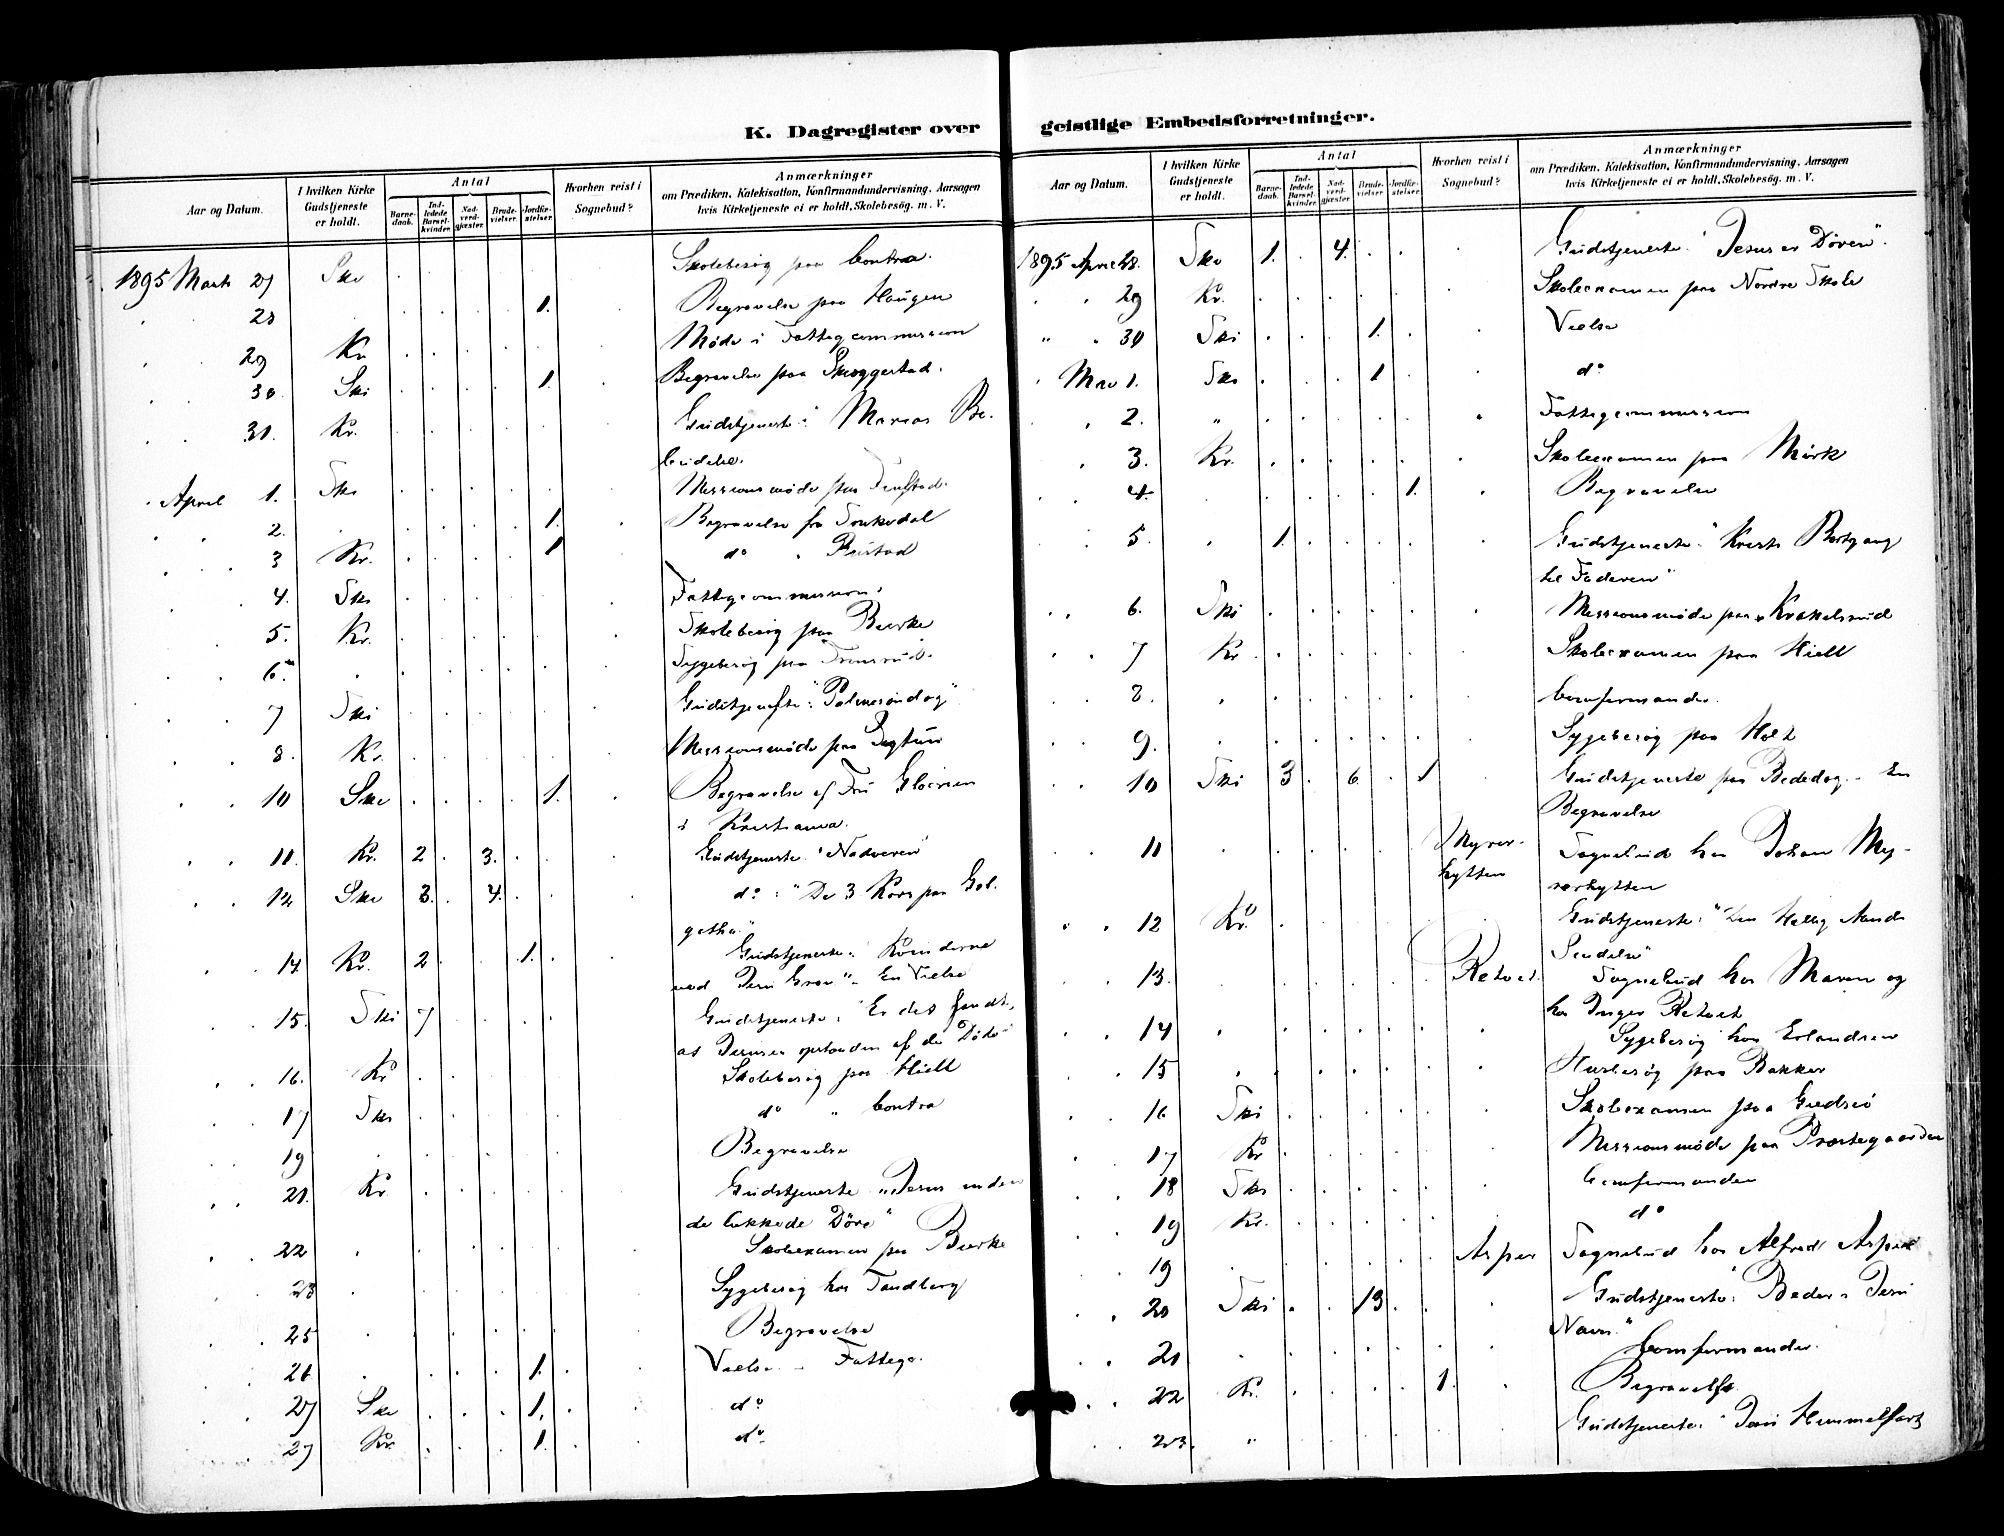 K. Dagregister over
Aar og Datum.
I hvilken Kirke Gudstjeneste er holdt.
Antal
Barne-daab.
Ind-ledede Barsel-kvinder.
Nad-verd-gjæster.
Brude-vielser.
Jordfæ-stelser.
Hvorhen reist i Sognebud?
Anmærkninger
om Prædiken, Katekisation, Konfirmandundervisning, Aarsagen
hvis Kirketjeneste ei er holdt, Skolebesøg. m. V.
1895 Marts 27 Ski Skolebesøg paa Contra.
28 1. Begravelse paa Haugen
29 Kr Møde i Fattigcommission
30. Ski 1. Begravelse paa Skoggestad.
31. Kr. Gudstjeneste: "Marias Be-
budelse.
April 1. Ski Missionsmøde paa
2. 1. Begravelse fra
3 Kr. 1 do " Rustad
4. Ski Fattigcommission.
5. Kr. Skolebesøg paa Bierke
6. Sygebesøg paa
7 Ski Gudstjeneste: "Palmesöndag"
8. Kr. Missionsmøde paa
10 Ski 1. Begravelse af Fru
i Kristiania.
11. Kr. 2 3. Gudstjeneste "Nadveren"
12 Ski 3. 4. do : "De 3 Kors paa Gol-
gatha."
14 Kr. 2 1. Gudstjeneste: "Kvinderne
ved Jesu Grav" - En Vielse
15. Ski 7 Gudstjeneste: "Er det sandt,
at Jesus er opstanden af de Døde"
16. Kr Skolebesøg paa Hiell
17 Ski do " Contra
19 Begravelse
21. Kr. Gudstjeneste "Jesus inden
de lukkede Døre"
22 Skoleexamen paa Bierke
23 Sygebesøg hos Tandberg
25 Begravelse
26 1. Vielse - Fattigc.
27 Ski 1. do
27 Kr. 1. do
geistlige Embedsforretninger.
Aar og Datum.
I hvilken Kirke Gudstjeneste er holdt.
Antal
Barne-daab.
Ind-ledede Barsel-kvinder.
Nad-verd-gjæster.
Brude-vielser.
Jordfæ-stelser.
Hvorhen reist i Sognebud?
Anmærkninger
om Prædiken, Katekisation, Konfirmandundervisning, Aarsagen
hvis Kirketjeneste ei er holdt, Skolebesøg. m. V.
1895 April 28. Ski 1. 4. Gudstjeneste: "Jesus er Døren".
29 Kr. Skoleexamen paa Nordre Skole
30 Ski 1. Vielse
Mai 1. Ski 1 do
2. " Fattigcommission
3. Kr. Skoleexamen paa Mörk
4. 1. Begravelse
5. 1. Gudstjeneste: "Kristi Bortgang
til Faderen"
6. Ski Missionsmøde paa Krakelsrud
7 Kr Skoleexamen paa Hiell
8. Comfirmander.
9. Sygebesøg paa Holt
10 Ski 3 6 1 Gudstjeneste paa Bededag - En
Begravelse
11 Myrer-
hytten Sognebud hos Johan My-
rerhytten
12 Kr. Gudstjeneste: "Den Hellig Aands
Sendelse"
13. Retvet Sognebud hos Maren og
hos Inger Retvet
14 Sygebesøg hos Erlandsen
15 Husbesøg paa Bakker
16 Ski Skoleexamen paa
17 Kr Missionsmøde paa Præstegaarden
18 Ski Comfirmander
19 Kr. do
19 Asper Sognebud hos Alfred Asper
20 Ski 13 Gudstjeneste: "Beder i Jesu
Navn."
21 Comfirmander.
22 Kr. 1. Begravelse
23. " Gudstjeneste: "Jesu Himmelfart